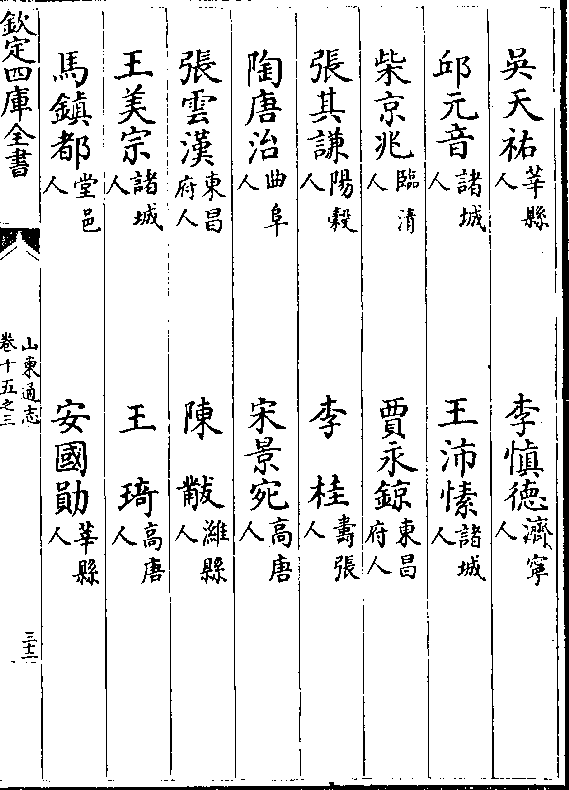 吳天祐莘縣人　李愼德濟寧人
邱元音諸城人　王沛愫諸城人
柴京兆臨清人　賈永錞東昌府人
張其謙陽穀人　李桂壽張人
陶唐治曲阜人　宋景宛高唐人
張雲漢東昌府人　陳黻濰縣人
王美宗諸城人　王琦高唐人
馬鎮都堂邑人　安國勛莘縣人
欽定四庫全書
山東通志
卷十五之三
三十二